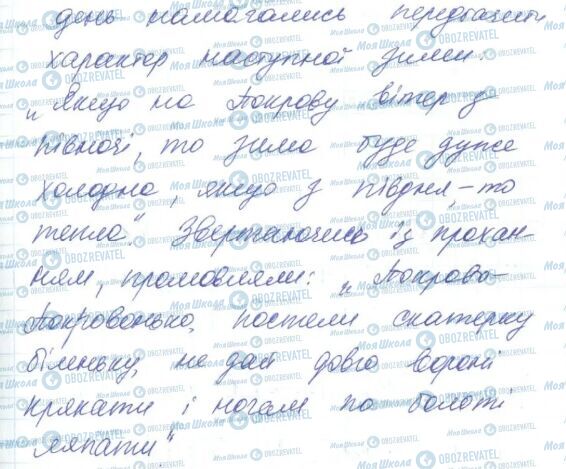 день намагались передбачити
характер наступної зими:
„Якщо на Покрову вітер з
півночі, то зима буде дуже
холодна, якщо з півдня, – то
тепла". Звертаючись із прохан-
ням, промовляли: „Покрово-
Покровонько, постели скатерку
біленьку, не дай довго вороні
крякати і ногам по болоті
ляпати"